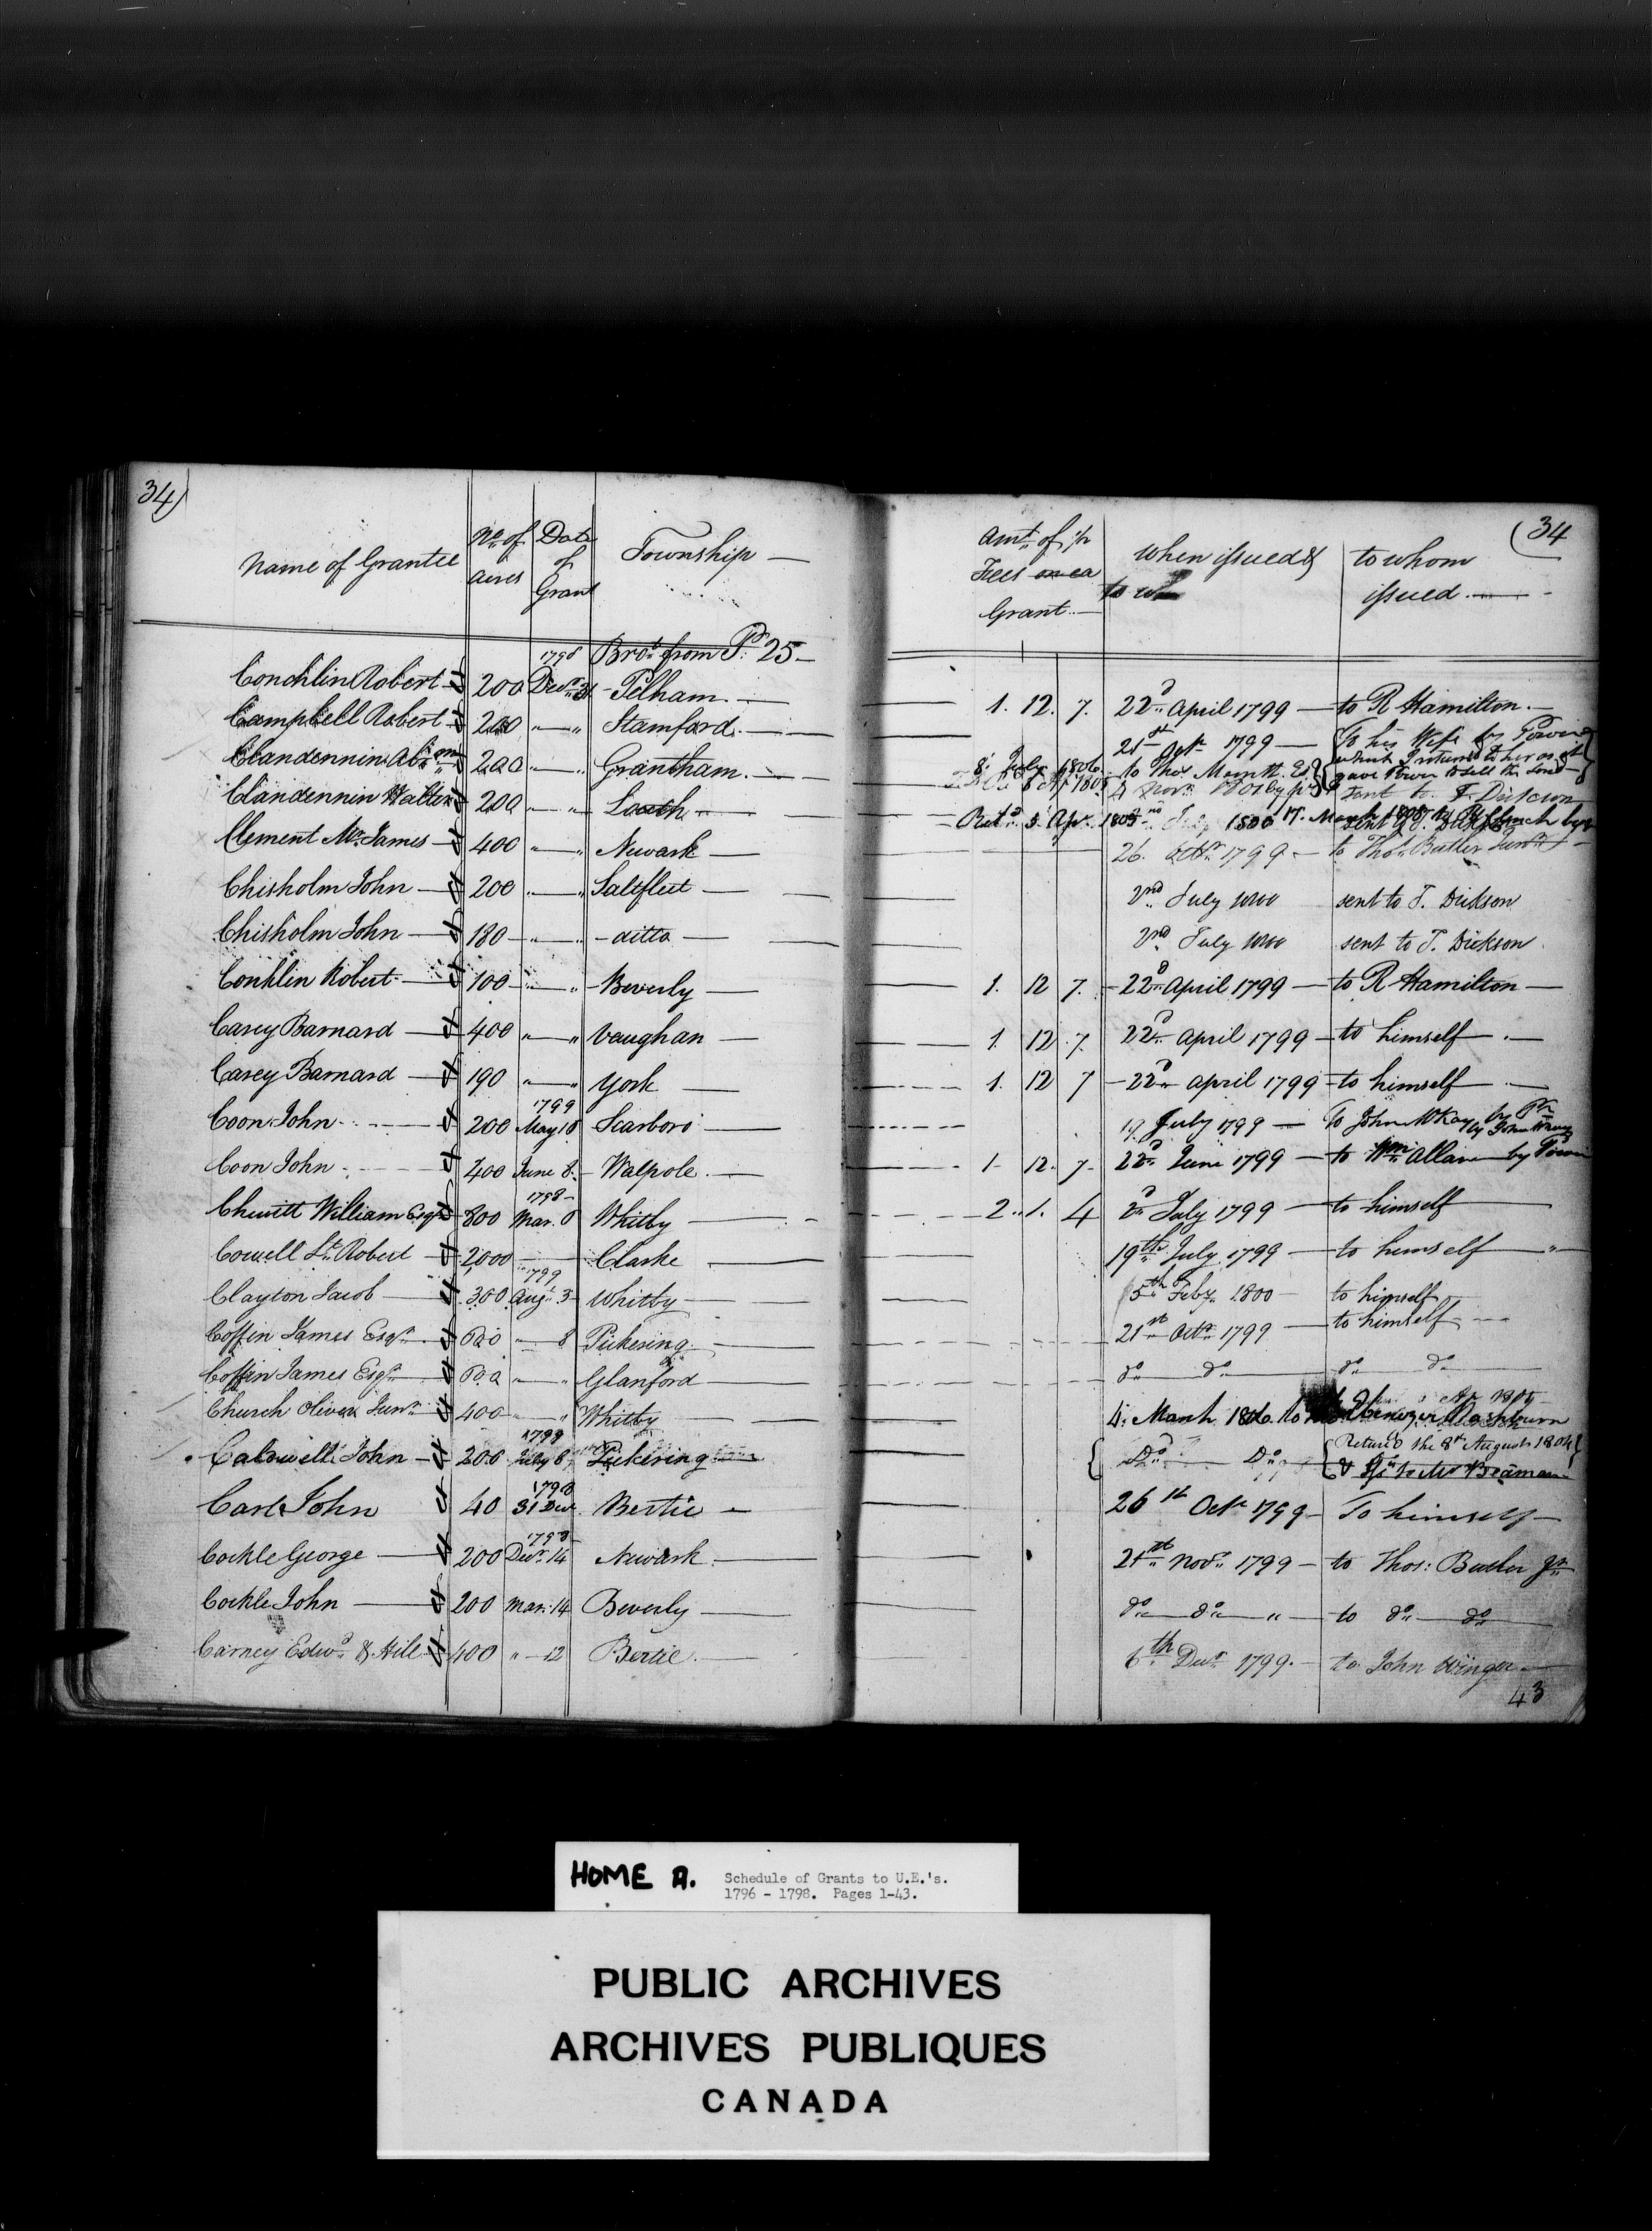 34)
Name of Grantee No. of Acres Date of Grant Township —
1798 Brot. from Pe. 25 —
Conchlin Robert 200 Decr. 31 Pelham
Campbell Robert 200 " Stamford
Clandennin Abrm. 200 " Grantham
Clandennin Walter 200 " Louth
Clement Mr. James 400 " Newark
Chisholm John 200 " Saltfleet
Chisholm John 180 " ditto
Conklin Robert 100 " Beverly
Casey Barnard 400 " Vaughan
Casey Barnard 190 " York
1799
Coon John 200 May 18 Scarboro
Coon John 400 June 8 Walpole
1798
Chewitt William Esqr. 800 Mar. 8 Whitby
Cowell Lt. Robert 2000 Clarke
1799
Clayton Jacob 300 Augt. 3 Whitby
Coffin James Esqr. 8 Pickering
Coffin James Esqr. " Glanford
Church Oliver Junr. 400 " Whitby
1799
Caldwell John 200 July 8 Pickering
1798
Carl John 40 31 Decr. Bertie
1798
Cockle George 200 Decr. 14 Newark
Cockle John 200 Mar. 14 Beverly
Carney Edwd. & Hill 400 " 12 Bertie
(34
Amt. of Fees on ea Grant When issued & to whom issued
1. 12. 7. 22d. April 1799 — to R Hamilton
21st Octr. 1799 — To his Wife by Power
which I returned to her as it
gave Power to sell the Land
8. July 1806 to Thos.
sent to T. Dickson
Retd. 3. Apr. 1805 July 1800 17. March 1808
26. Octr. 1799 — to Thos. Butler Junr.
2nd. July 1800 sent to T. Dickson
2nd. July 1800 sent to T. Dickson
1. 12 7. 22d. April 1799 — to R Hamilton —
1. 12. 7. 22d. April 1799 — to himself
1. 12 7 22d. April 1799 — to himself
19 July 1799 — To John McKay by
1. 12. 7. 22d. June 1799 — to Wm. Allan by Power
2. 1. 4 2d. July 1799 — to himself
19th. July 1799 — to himself
5th Feby. 1800 to himself
21st Octr. 1799 — to himself
do. do. do. do.
4. March 1806 to Ebenezer Washburn
Do. Do. Returd the 8th August 1804
26th Octr. 1799 — To himself
21st Novr. 1799 — to Thos: Butler Jr.
do. do. " — to do. do.
6th Decr. 1799 — to John Winger
43
HOME A. Schedule of Grants to U.E.'s.
1796 - 1798. Pages 1-43.
PUBLIC ARCHIVES
ARCHIVES PUBLIQUES
CANADA